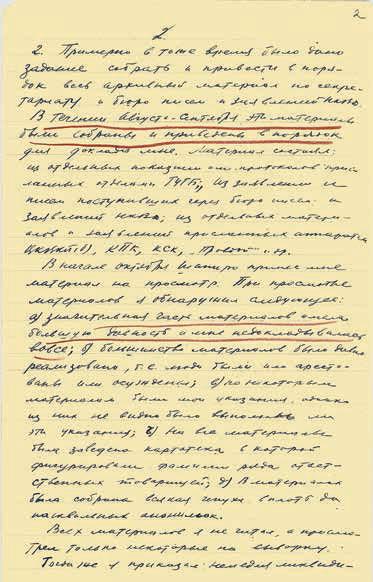 2
2
2. Примерно в тоже время было дано
задание собрать и привести в поря-
док весь архивный материал по секре-
тариату и бюро писем и заявлений НКВД.
В течении Август-Сентября эти материалы
были собраны и приведены в порядок
для доклада мне. Материал состоял:
из отдельных показаний и протоколов прис-
ланных отделами ГУГБ, из заявлений и
писем поступивших через бюро писем и
заявлений НКВД; из отдельных матери-
алов и заявлений присланных аппаратом
ЦК ВКП(б), КПК, КСК, и др.
В начале октября Шапиро принес мне
материал на просмотр. При просмотре
материалов я обнаружил следующее:
а) значительная часть материалов имела
большую давность и мне недокладывалась
вовсе; б) большинство материалов было давно
реализовано, т.е. люди были или аресто-
ваны или осуждены; в) по некоторым
материалам были мои указания, однако
из них не видно было выполнены ли
эти указания; г) На все материалы
была заведена картотека в которой
фигурировали фамилии ряда ответ-
ственных товарищей; д) В материалах
была собрана всякая вплоть до
пасквильных анонимок.
Всех материалов я не читал, а просмо-
трел только некоторые на выборку.
Тогда же я приказал немедля ликвиди-